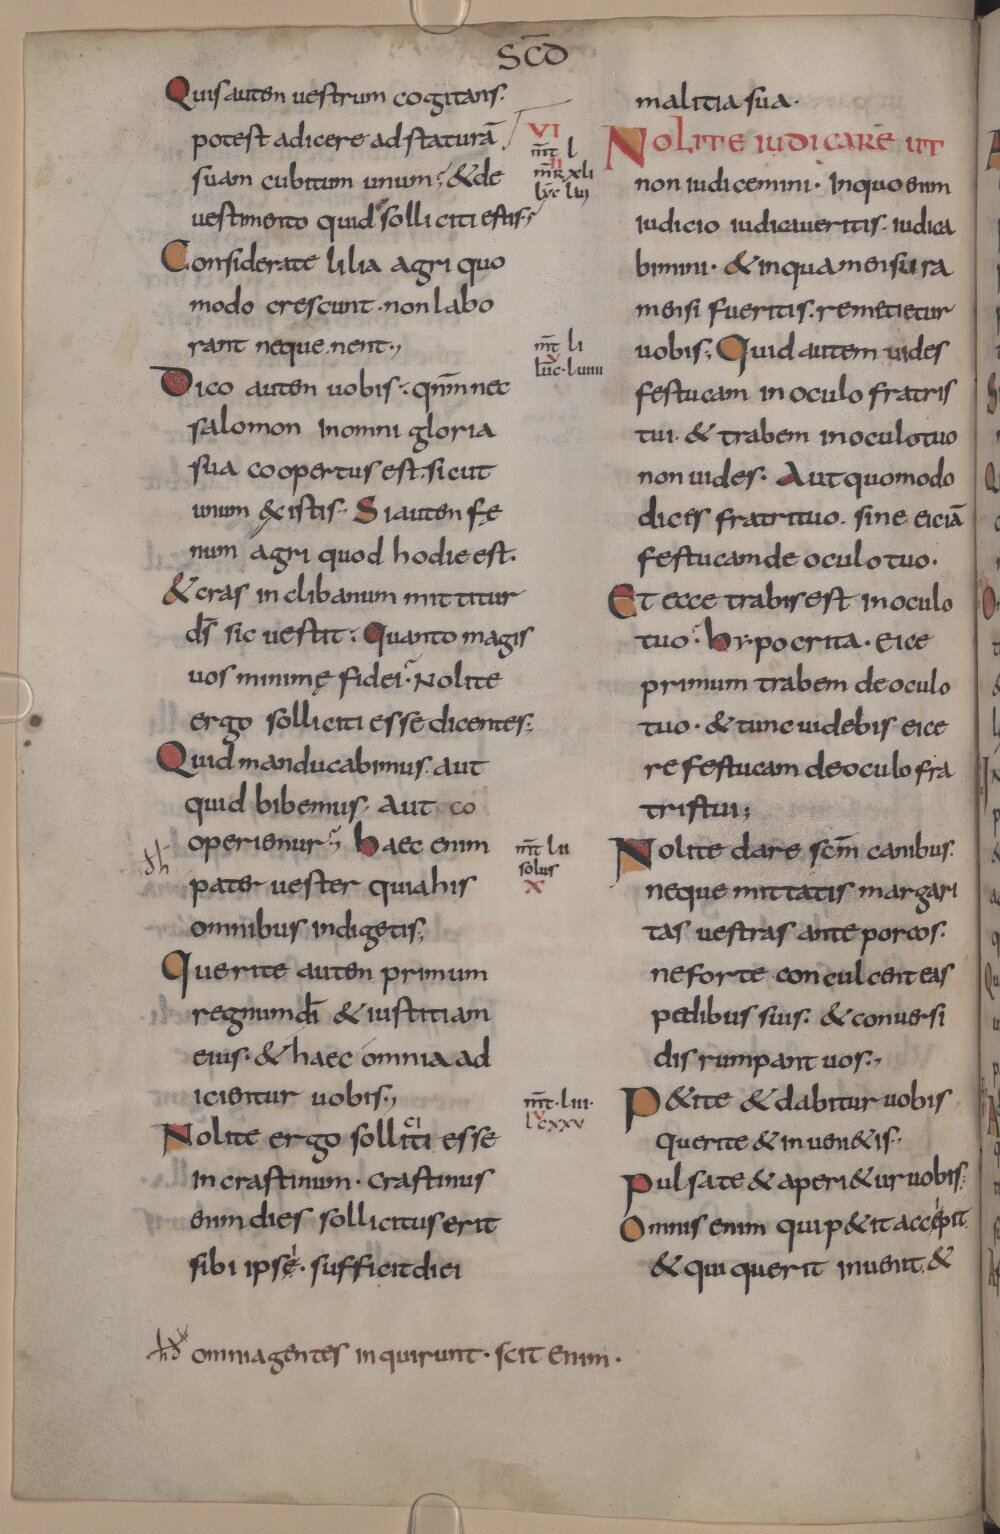 SCD
Quis autem uestrum cogitans.
potest adicere ad staturā
suam cubitum unum; & de
uestimento quid solliciti estis;
Considerate lilia agri quo
modo crescunt. non labo
rant neque nent.,
Dico autem uobis. qnm̄ nec
salomon In omni gloria
sua coopertus est. sicut
unum & istis. Si autem fę
num agri quod hodie est.
& cras in clibanum mittitur
d̄s sic uestit. Quanto magis
uos minimę fidei. Nolite
ergo solliciti esse dicentes;
Quid manducabimus. aut
quid bibemus. Aut co
operiemur; Haec enim
pater uester quia his
omnibus indigetis;
Querite autem primum
regnum dī & iustitiam
eius. & haec omnia ad
icientur uobis.,
Nolite ergo solliciti esse
in crastinum. Crastinus
enim dies sollicitus erit
sibi ipse. sufficit diei
hd omnia gentes inquirunt. scit enim.
VI
m̄t l
m̄r xli
II
lūc liii
m̄t li
V
lūc. luiiii
m̄t lii
solus
X
m̄t. liii.
V
l̄c xxv
malitia sua.
Nolite iudicare ut
non iudicemini. In quo enim
iudicio iudicaueritis. iudica
bimini. & in qua mensura
mensi fueritis. remetietur
uobis; Quid autem uides
festucam in oculo fratris
tui. & trabem in oculo tuo
non uides. Aut quomodo
dicis fratri tuo. sine eiciā
festucam de oculo tuo.
Et ecce trabis est in oculo
tuo. hypocrita. eice
primum trabem de oculo
tuo. & tunc uidebis eice
re festucam de oculo fra
tris tui;
Nolite dare scm̄ canibus.
neque mittatis margari
tas uestras ante porcos.
ne forte conculcent eas
pedibus suis. & conuersi
disrumpant uos.,
P&ite & dabitur uobis
querite & inueni&is.
Pulsate & aperi&ur uobis.
Omnis enim qui p&it accepit
& qui querit inuenit. &